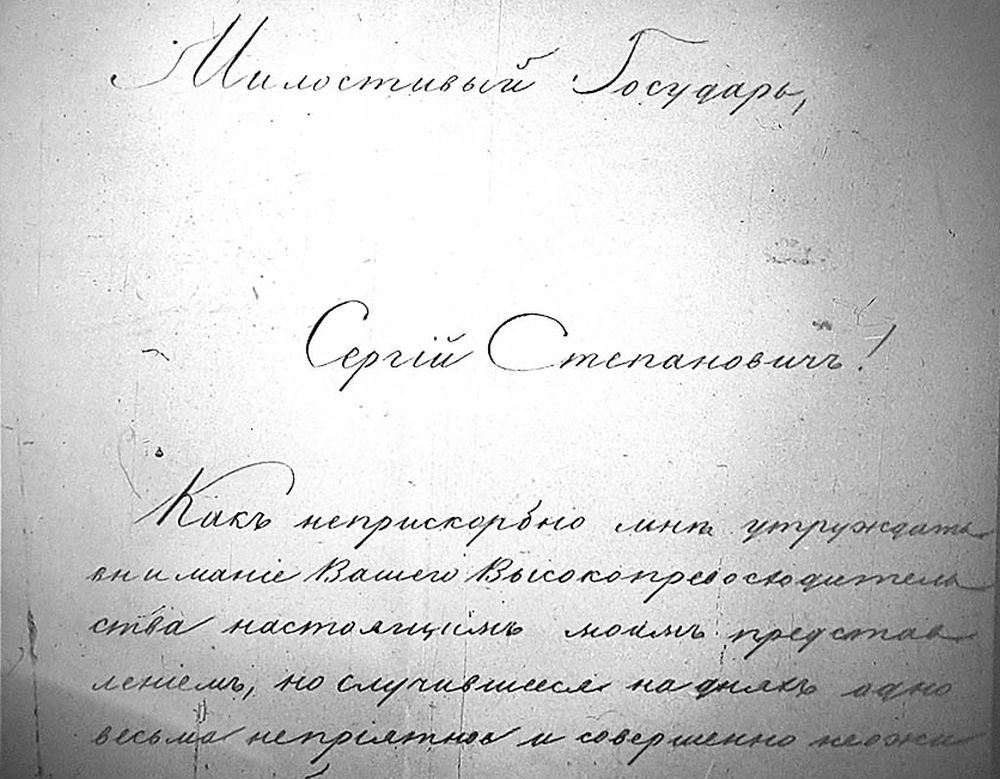 Милостивый Государь,
Сергій Степановичъ!
Какъ неприскорбно мнѣ утруждать
вниманіе Вашего Высокопревосходитель
ства настоящимъ моимъ представ
леніемъ, но случившееся на дняхъ одно
весьма непріятное и совершенно неожи